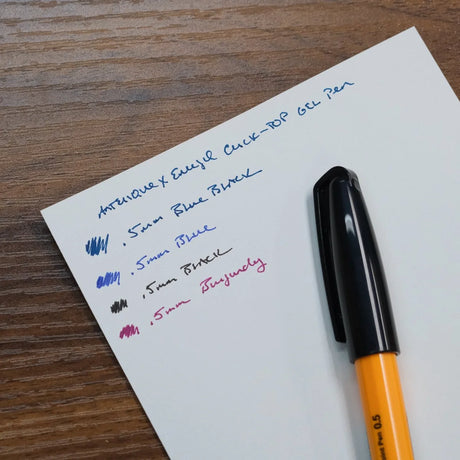 ANTERIQUE X Energel CLICK-TOP GEL Pen
.5mm Blue BLACK
.5mm Blue
.5mm BLACK
.5mm Burgundy
Pen 0.5